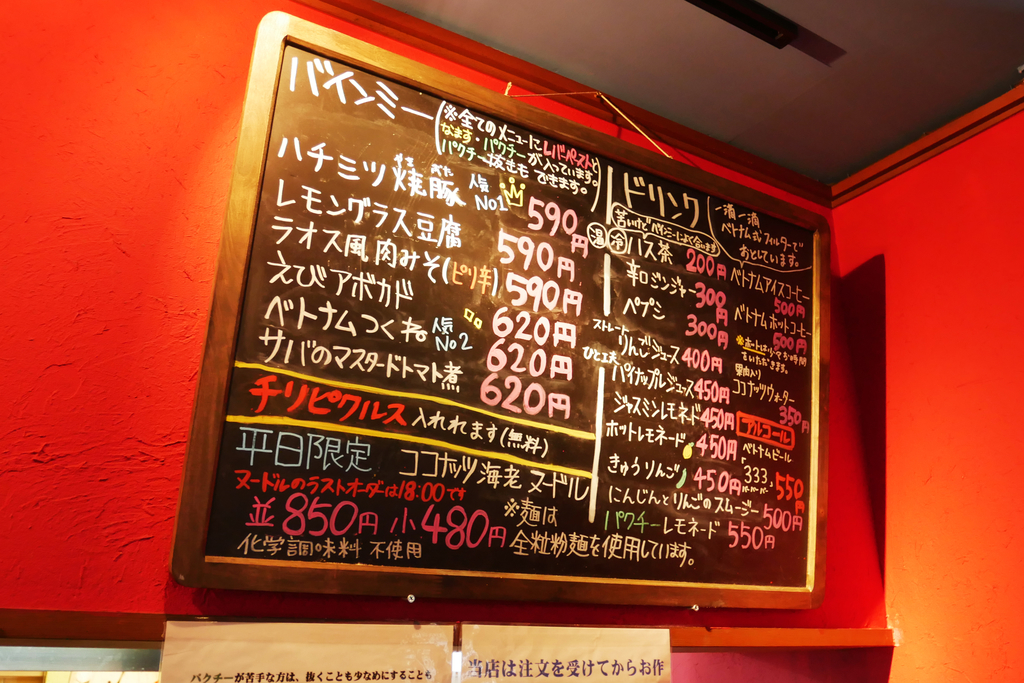 バインミー
※全てのメニューにレバーペーストと
なます・パクチーが入っています。
パクチー抜きもできます。
ハチミツ焼豚 人気No1 590円
やき ぶた
レモングラス豆腐 590円
ラオス風肉みそ(ピリ辛) 590円
えびアボカド 620円
ベトナムつくね 人気No2 620円
サバのマスタードトマト煮 620円
チリピクルス 入れれます(無料)
平日限定 ココナッツ海老ヌードル
ヌードルのラストオーダーは18:00です
並850円 小480円
※麺は
全粒粉麺を使用しています。
化学調味料 不使用
ドリンク
苦いけどバインミーによく合います
温 冷 ハス茶 200円
辛口ジンジャー 300円
ペプシ 300円
ストレート
りんごジュース 400円
ひとふさ
パイナップルジュース 450円
ジャスミンレモネード 450円
ホットレモネード 450円
きゅうりんご 450円
にんじんとりんごのスムージー 500円
パクチーレモネード 550円
一滴一滴
ベトナム式フィルターで
おとしています。
ベトナムアイスコーヒー
500円
ベトナムホットコーヒー
500円
をいただきます。
果肉入り
ココナッツウォーター
350円
アルコール
ベトナムビール
「333」 550円
バーバーバー
パクチーが苦手な方は、抜くことも少なめにすることも
当店は注文を受けてからお作